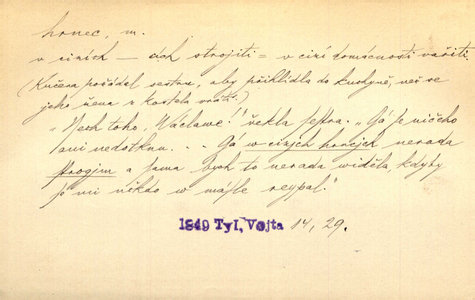 hrnec, m.
v cizích — cích strojiti = v cizí domácnosti vařiti.
(Kučera požádal sestru, aby přihlídla do kuchyně, než se
jeho žena z kostela vrátí.)
„Nech toho, Václawe!" řekla sestra. „Já se ničeho
ani nedotknu. . . . Ga w cizých hrncých nerada
strogjm a sama bych to nerada widěla, kdyby
se mi někdo w másle reypal.
1849 Tyl, Vojta 14, 29.